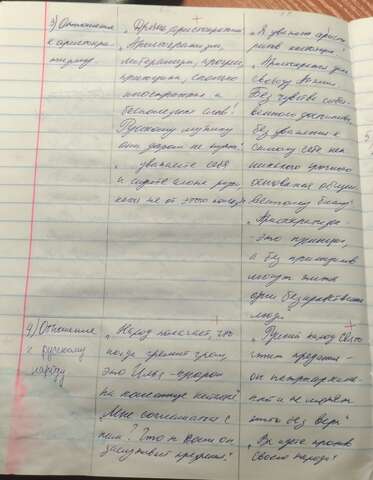 3) Отношение
к аристокра-
тизму.
„Дрянь, аристократишка"
„Аристократизм,
либерализм, прогресс,
принципы, сколько
иностранных и
бесполезных слов!
Русскому мужику
они даром не нужны"
„ уважаете себя
и сидите сложа руки,
какая же от этого польза
„Я уважаю аристо-
кратов
„Аристократия дала
свободу Англии
Без чувства собст-
венного достоинства,
без уважения к
самому себе нет
никакого прочного
основания обществ
венному благу"
„Аристократизм
- это принципы,
а без принципов
могут жить
одни безнравственные
люди
4) Отношение
к русскому
народу
„Народ полагает, что
когда гремит гром,
это Илья-пророк
на колеснице катает
„Мне соглашаться с
ним?
заслуживает презрения"
„Русский народ свято
чтит предания
он патриархален
и не может
жить без веры"
„Вы идете против
своего народа"